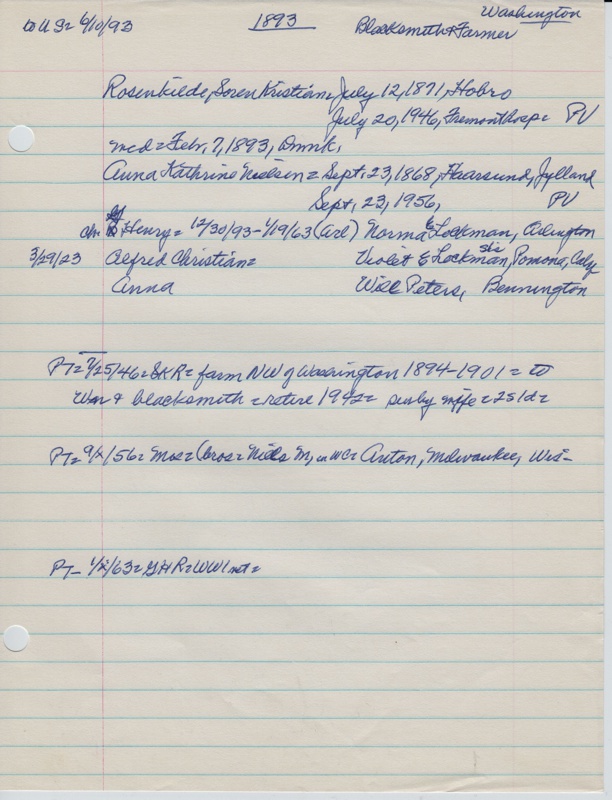 to US= 6/10/93 1893 Washington
Blacksmith & Farmer
Rosenkilde, Soren Kristian= July 12, 1871, Hobro
July 20, 1946, Fremont hosp= PV
mcd= Febr. 7, 1893, Dnmk,
Anna Kathrine Nielsen= Sept. 23, 1868, Haarsund, Jylland
Sept. 23, 1956, PV
ch= G Henry= 12/30/93-1/19/63 (Arl) Norma E Lockman, Arlington
3/29/23 Alfred Christian= Violet E Lockman, sis Pomona, Calif
Anna Will Peters, Bennington
PT= 7/25/46= SKR= farm NW of Washington 1894-1901= to
Wn & blacksmith= retire 1942= surby wife= 2s1d=
PT= 9/x/56= Mos= (bros= Niels M, in WC= Anton, Milwaukee, Wis-
PT- 1/x/63= GHR= WW1 vet=